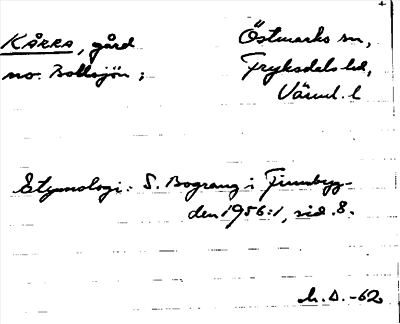 KÅRRA, gård
no. Bollsjön;
Östmarks sn,
Fryksdals hd,
Värml. l
Etymologi: S. Bograng i Finnbyg-
den 1956:1, sid. 8.
h. D. -62